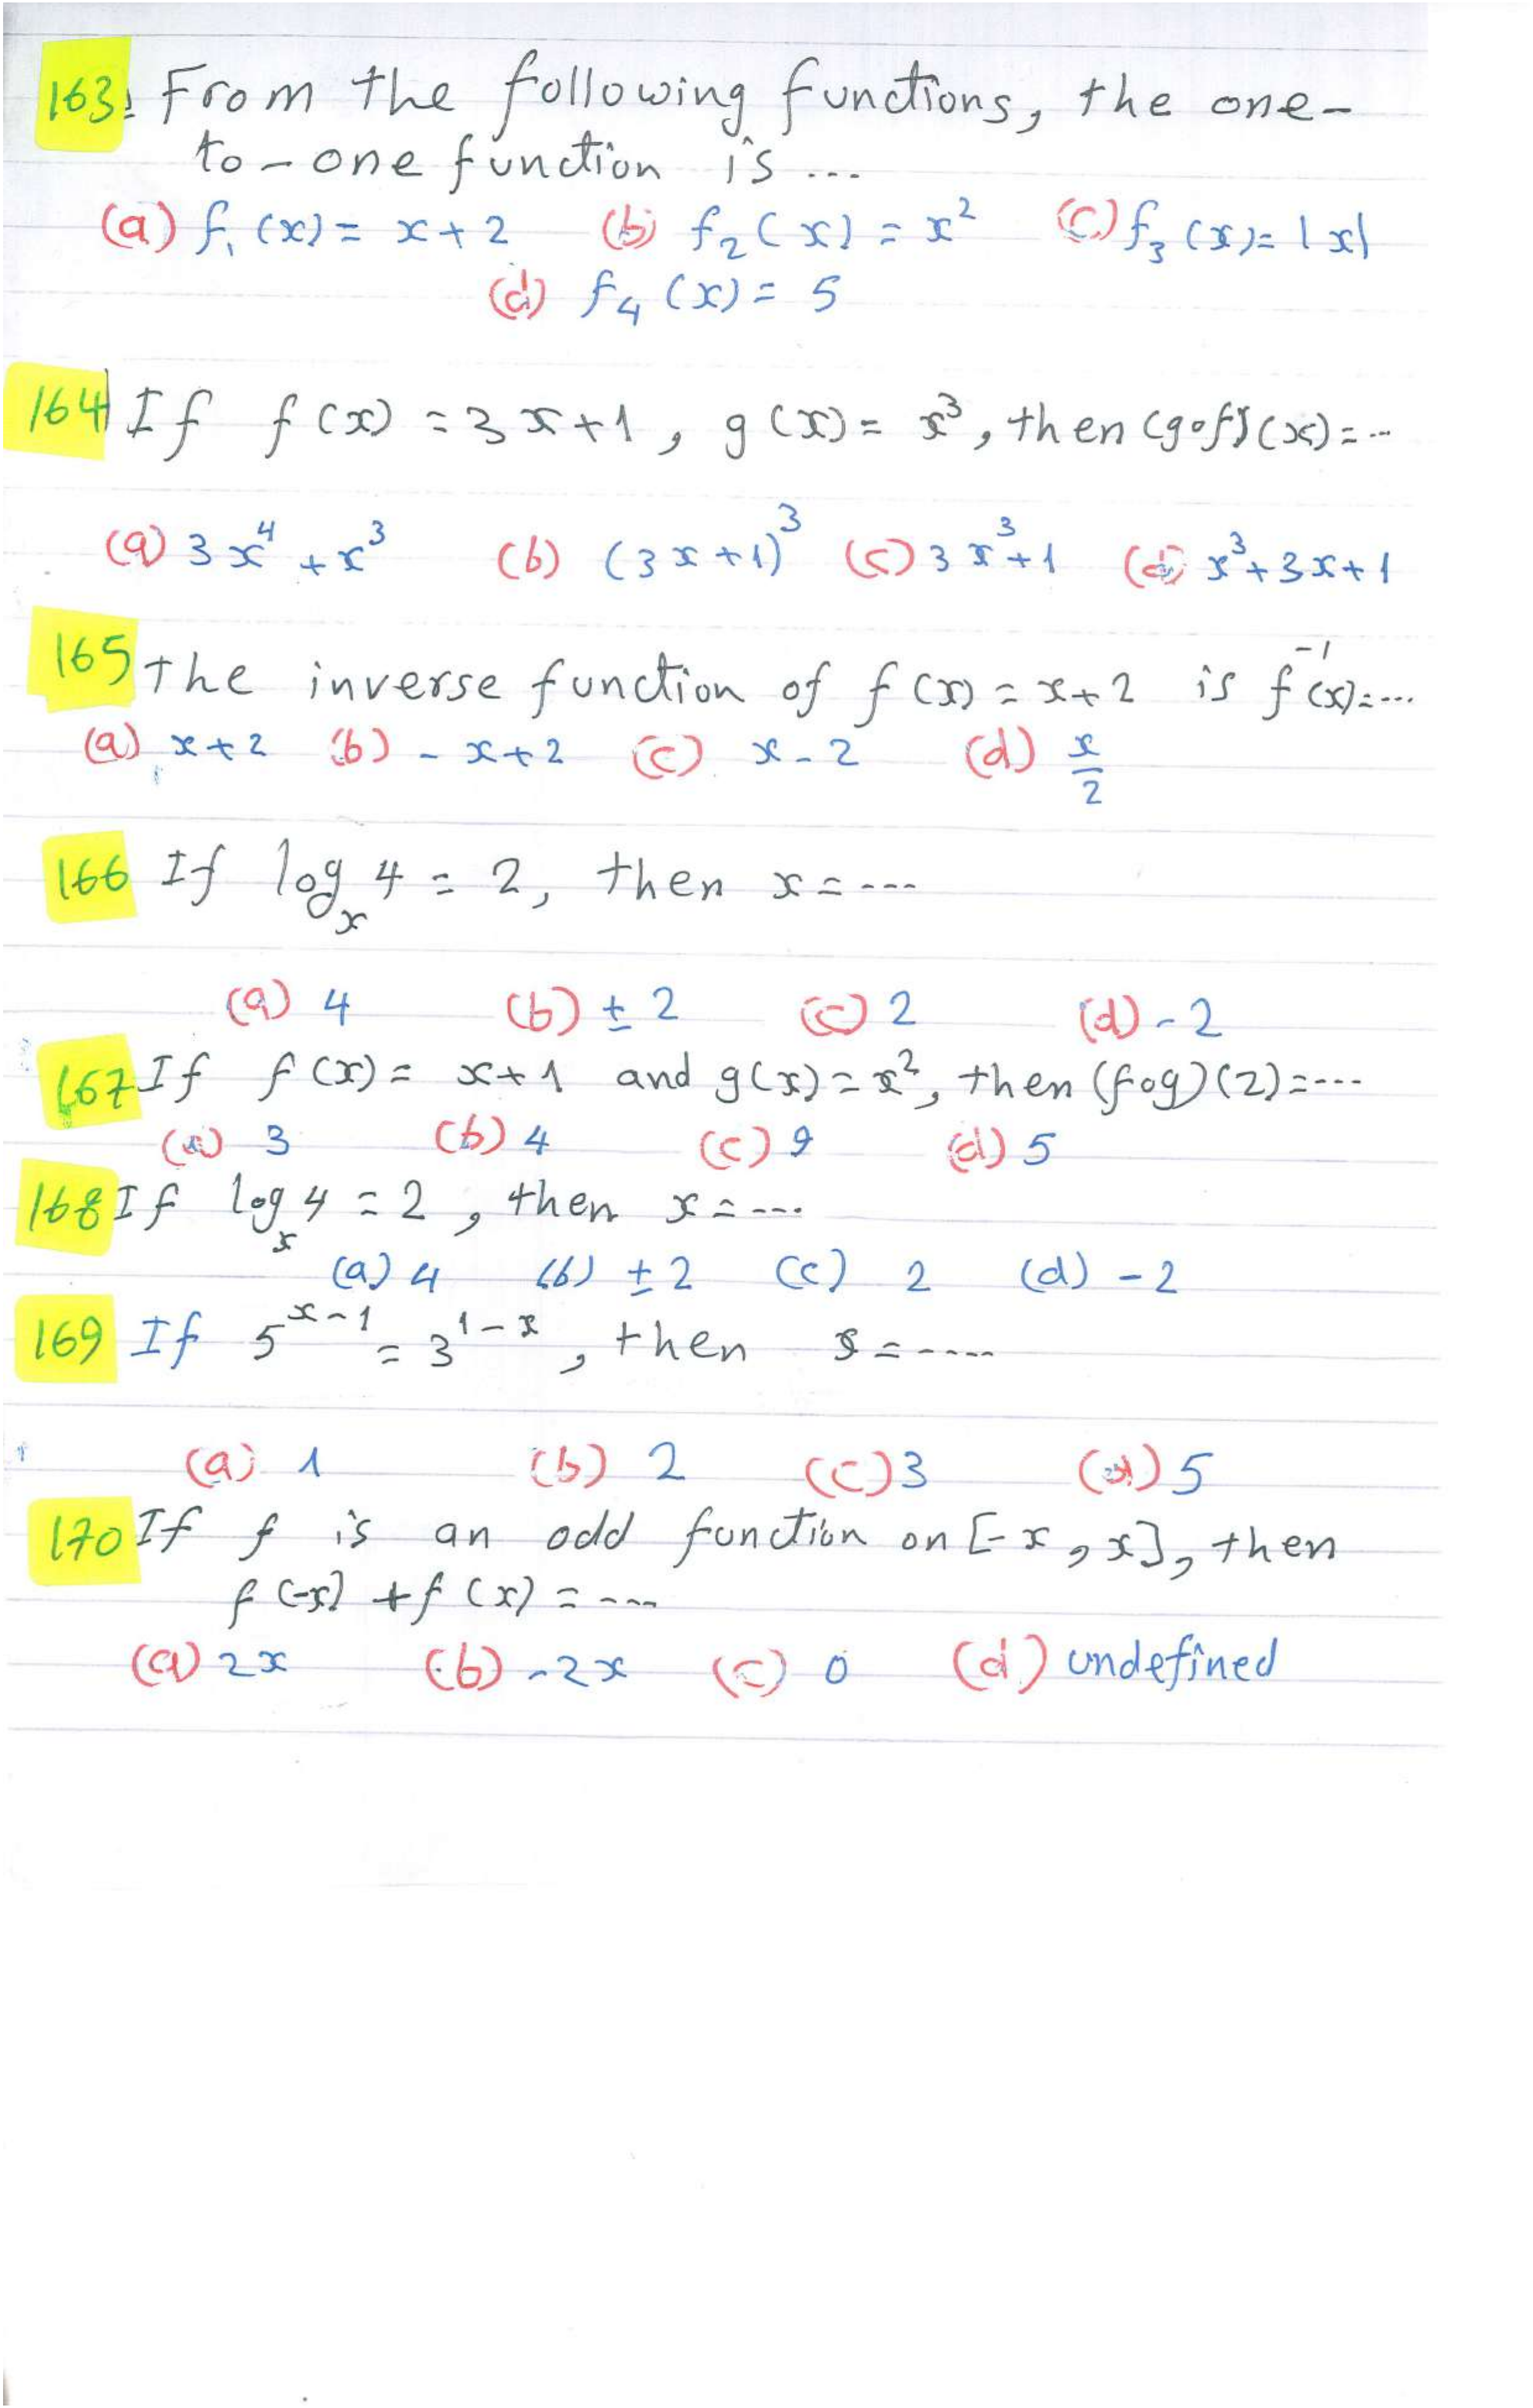 163: From the following functions, the one-
to-one function is ...
(a) f₁(x) = x+2 (b) f₂(x) = x² (c) f₃(x) = |x|
(d) f₄(x) = 5
164 If f(x) = 3x+1, g(x) = x³, then (gof)(x) = ...
(a) 3x⁴ + x³ (b) (3x+1)³ (c) 3x³+1 (d) x³+3x+1
165 The inverse function of f(x) = x+2 is f⁻¹(x) = ...
(a) x+2 (b) -x+2 (c) x-2 (d) x/2
166 If logₓ 4 = 2, then x = ---
(a) 4 (b) ± 2 (c) 2 (d) -2
167 If f(x) = x+1 and g(x) = x², then (fog)(2) = ---
(a) 3 (b) 4 (c) 9 (d) 5
168 If logₓ 4 = 2, then x = ---
(a) 4 (b) ± 2 (c) 2 (d) -2
169 If 5ˣ⁻¹ = 3¹⁻ˣ, then x = ----
(a) 1 (b) 2 (c) 3 (d) 5
170 If f is an odd function on [-x, x], then
f(-x) + f(x) = ---
(a) 2x (b) -2x (c) 0 (d) undefined